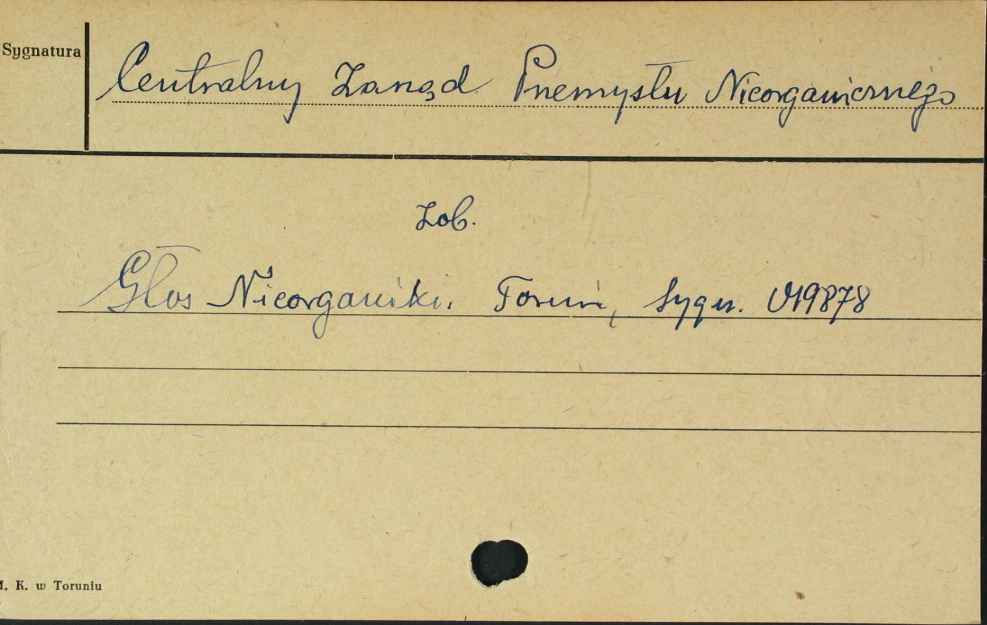 Sygnatura
Centralny Zarząd Przemysłu Nieorganicznego
Zob.
Głos Nieorganiki. Toruń, Sygn. 019878
M. K. w Toruniu